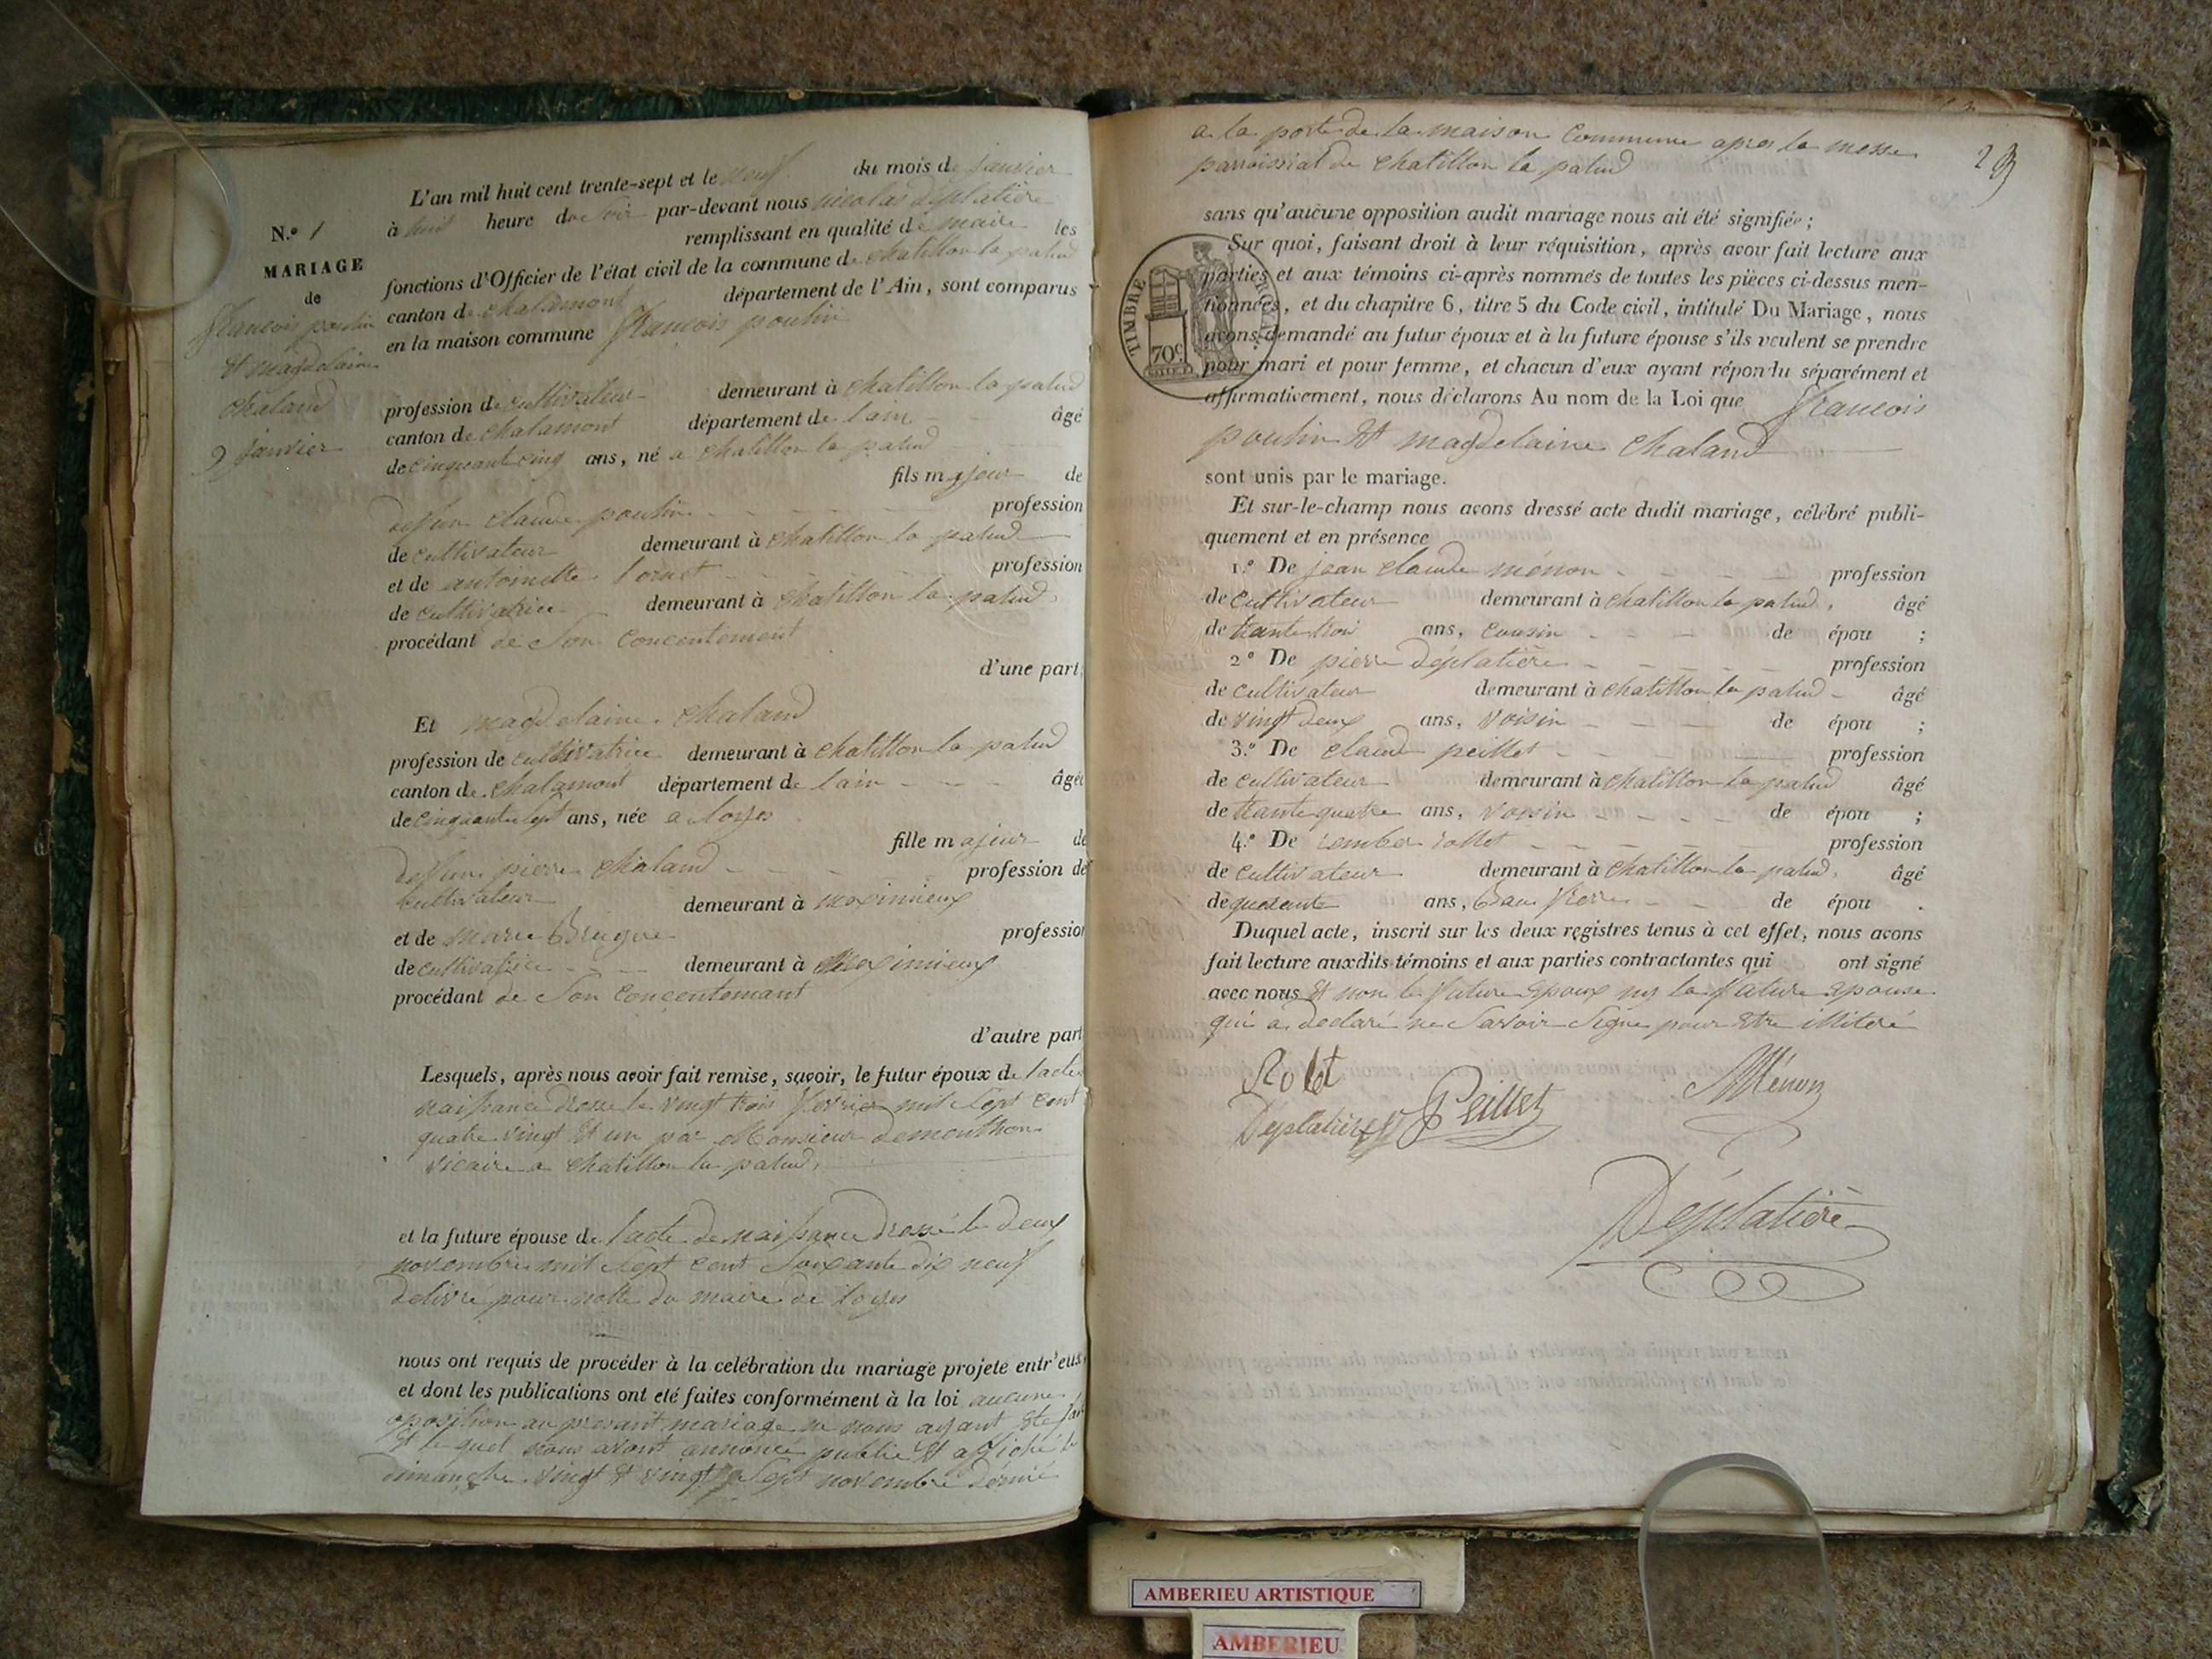 N.º 1
MARIAGE
de
francois poulin
et magdelaine
chaland
9 janvier
L'an mil huit cent trente-sept et le neuf du mois de janvier
à huit heure du soir par-devant nous nicolas déplatière
remplissant en qualité de maire les
fonctions d'Officier de l'état civil de la commune de chatillon la palud
canton de chalamont département de l'Ain, sont comparus
en la maison commune francois poulin
profession de cultivateur demeurant à chatillon la palud
canton de chalamont département de lain âgé
de cinquante cinq ans, né a chatillon la palud
fils majeur de
deffun claude poulin profession
de cultivateur demeurant à chatillon la palud
et de antoinette profession
de cultivatrice demeurant à chatillon la palud
procédant de son concentement
d'une part
Et magdelaine chaland
profession de cultivatrice demeurant à chatillon la palud
canton de chalamont département de lain âgée
de cinquante sept ans, née a loyes
fille majeur de
deffun pierre chaland profession de
cultivateur demeurant à meximieux
et de marie profession
de cultivatrice demeurant à meximieux
procédant de son concentemant
d'autre part
Lesquels, après nous avoir fait remise, savoir, le futur époux de lacte
naissance dresse le vingt trois fevrier mil sept cent
quatre vingt et un par Monsieur demonthon
vicaire a chatillon la palud
et la future épouse de lacte de naissance dressé le deux
novembre mil sept cent soixante dix neuf
delivré pour notte du maire de loyes
nous ont requis de procéder à la celébration du mariage projete entr'eux,
et dont les publications ont eté faites conformément à la loi aucune
oposition au presant mariage ne nous ayant ete fait
et lequel nous avont annoncé publié et affiché le
dimanche vingt et vingt sept novembre dernié
23
a la porte de la maison commune apres la messe
parroissial de chatillon la palud
sans qu'aucune opposition audit mariage nous ait été signifiée;
TIMBRE
70c
Sur quoi, faisant droit à leur réquisition, après avoir fait lecture aux
parties et aux témoins ci-après nommés de toutes les pièces ci-dessus men-
tionnées, et du chapitre 6, titre 5 du Code civil, intitulé Du Mariage, nous
avons demandé au futur époux et à la future épouse s'ils veulent se prendre
pour mari et pour femme, et chacun d'eux ayant répondu séparément et
affirmativement, nous déclarons Au nom de la Loi que francois
poulin et magdelaine chaland
sont unis par le mariage.
Et sur-le-champ nous avons dressé acte dudit mariage, célébré publi-
quement et en présence
1.º De jean claude ménon profession
de cultivateur demeurant à chatillon la palud, âgé
de trante troi ans, cousin de épou ;
2º De pierre déplatière profession
de cultivateur demeurant à chatillon la palud âgé
de vingt deux ans, voisin de épou ;
3.º De claud peillet profession
de cultivateur demeurant à chatillon la palud âgé
de trante quatre ans, voisin de épou ;
4.º De profession
de cultivateur demeurant à chatillon la palud, âgé
de quarante ans, Beau frere de épou .
Duquel acte, inscrit sur les deux registres tenus à cet effet, nous avons
fait lecture auxdits témoins et aux parties contractantes qui ont signé
avec nous et non le future epoux ny la future epouse
qui a declaré ne savoir signe pour etre illiteré
Rolet
Ménon
Déplatière Peillet
Déplatière
AMBERIEU ARTISTIQUE
AMBERIEU